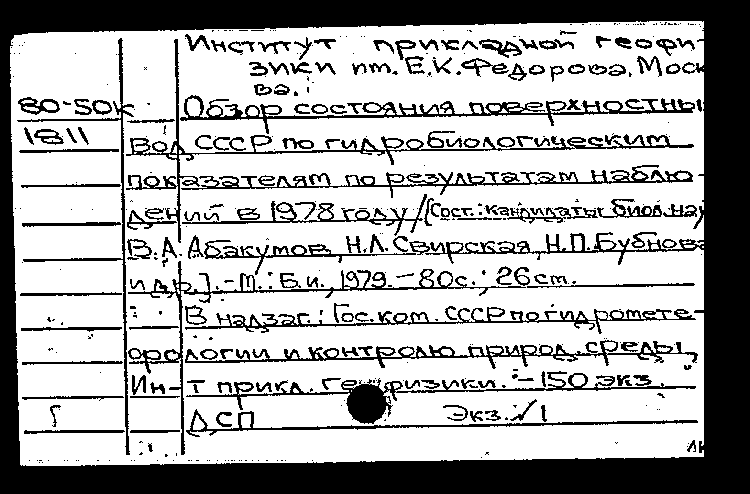 Институт прикладной геофи-
зики им. Е.К.Федорова, Моск
ва.
80-50к Обзор состояния поверхностны
1811 Вод СССР по гидробиологическим
показателям по результатам наблю-
дений в 1978 году/[Сост.: кандидаты биол.нау
В.А.Абакумов, Н.Л.Свирская, Н.П.Бубнова
и др.].-М.: Б.и., 1979.-80с.; 26см.
В надзаг.: Гос.ком. СССР по гидромете-
орологии и контролю природ.среды,
Ин-т прикл. геофизики. -150 экз.
ДСП Экз.№1